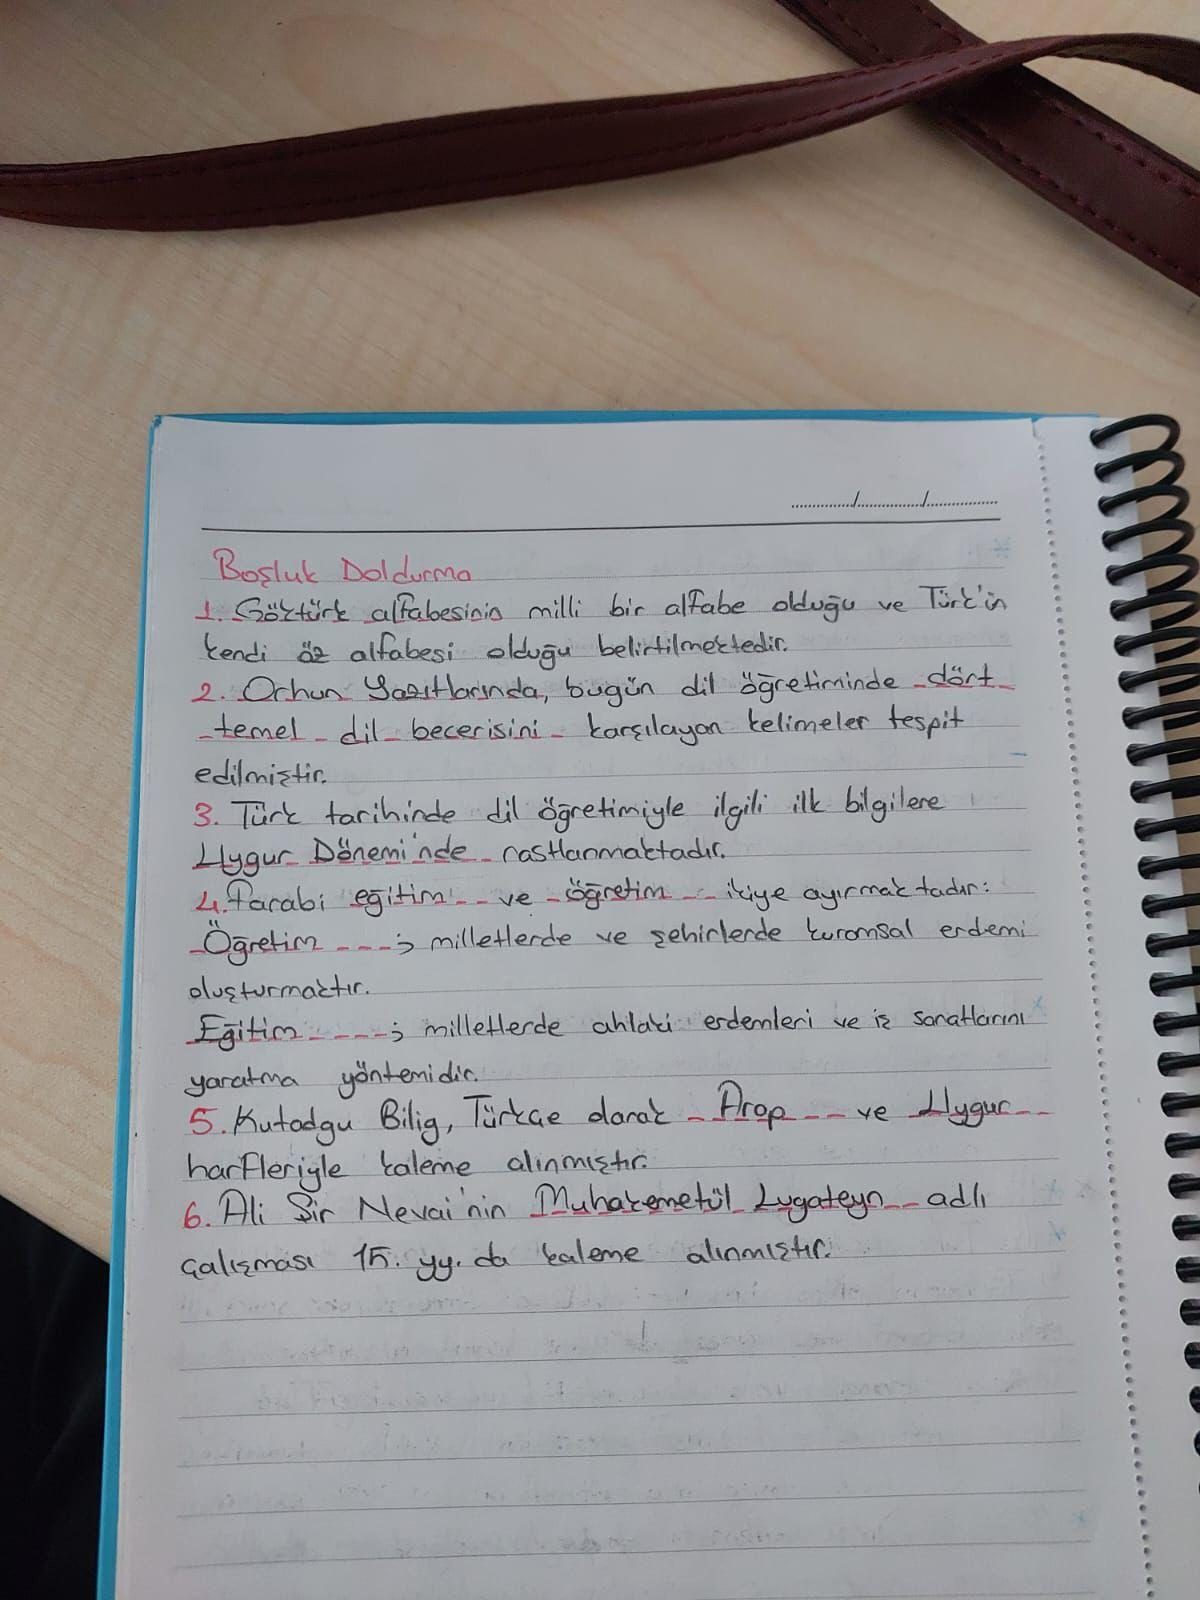 ............/............/............
Boşluk Doldurma
1. Göktürk alfabesinin milli bir alfabe olduğu ve Türk'ün
kendi öz alfabesi olduğu belirtilmektedir.
2. Orhun Yazıtlarında, bugün dil öğretiminde dört
temel dil becerisini karşılayan kelimeler tespit
edilmiştir.
3. Türk tarihinde dil öğretimiyle ilgili ilk bilgilere
Uygur Dönemi'nde rastlanmaktadır.
4. Farabi eğitim ve öğretim ikiye ayırmaktadır:
Öğretim ; milletlerde ve şehirlerde kuramsal erdemi
oluşturmaktır.
Eğitim ; milletlerde ahlaki erdemleri ve iş sanatlarını
yaratma yöntemidir.
5. Kutadgu Bilig, Türkçe olarak Arap ve Uygur
harfleriyle kaleme alınmıştır.
6. Ali Şir Nevai'nin Muhakemetül Lugateyn adlı
çalışması 15. yy. da kaleme alınmıştır.